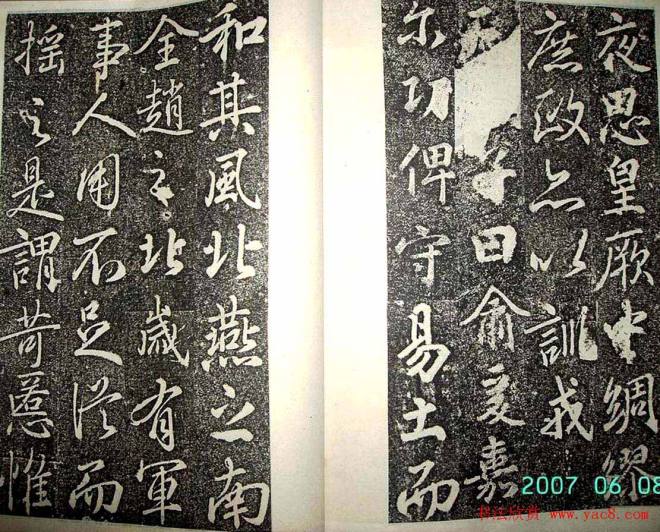 夜思皇厥中綢繆
庶政亦以訓我
天子曰俞爰嘉
尔功俾守易土而
和其風北燕之南
全趙之北歲有軍
事人用不足從而
搖之是謂苛慝惟
2007 06 08
书法欣赏 www.yac8.com